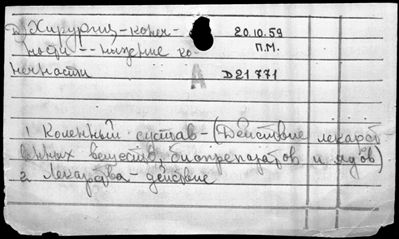 Хирургия-конеч- 20.10.59
ности--нижние ко- П.М.
нечности А D21771
1 Коленный сустав-(Действие лекарст
венных веществ, биопрепаратов и ядов)
2 Лекарства-действие